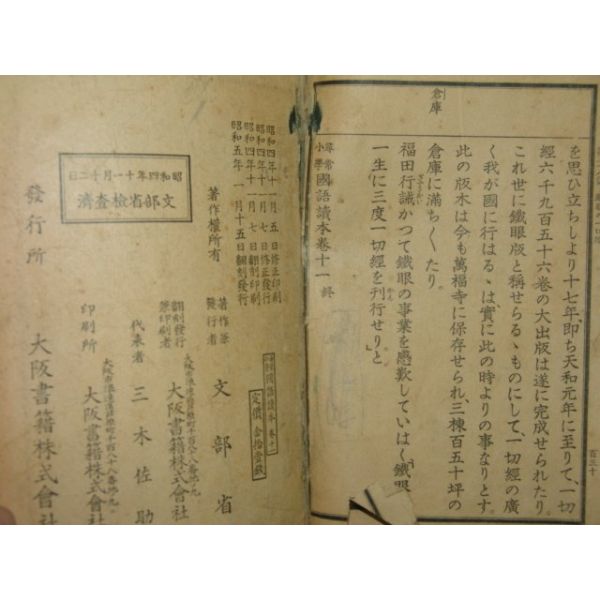 倉庫
を思ひ立ちしより十七年、卽ち天和元年に至りて、一切
經六千九百五十六卷の大出版は遂に完成せられたり。
これ世に鐵眼版と稱せらるゝものにして、一切經の廣
く我が國に行はるゝは實に此の時よりの事なりとす。
此の版木は今も萬福寺に保存せられ、三棟百五十坪の
倉庫に滿ちたり。
福田行誡かつて鐵眼の事業を感歎していはく、「鐵眼
一生に三度一切經を刊行せり」と。
尋常小學國語讀本卷十一 終
百三十
昭和四年十一月五日修正印刷
昭和四年十一月七日修正發行
昭和四年十一月七日翻刻印刷
昭和五年一月十五日翻刻發行
著作權所有
昭和四年十一月十二日
文部省檢查濟
國語讀本 卷十一
定價金拾壹錢
著作兼發行者 文部省
翻刻發行兼印刷者
大阪書籍株式會社
代表者 三木佐助
印刷所
大阪書籍株式會社
發行所 大阪書籍株式會社